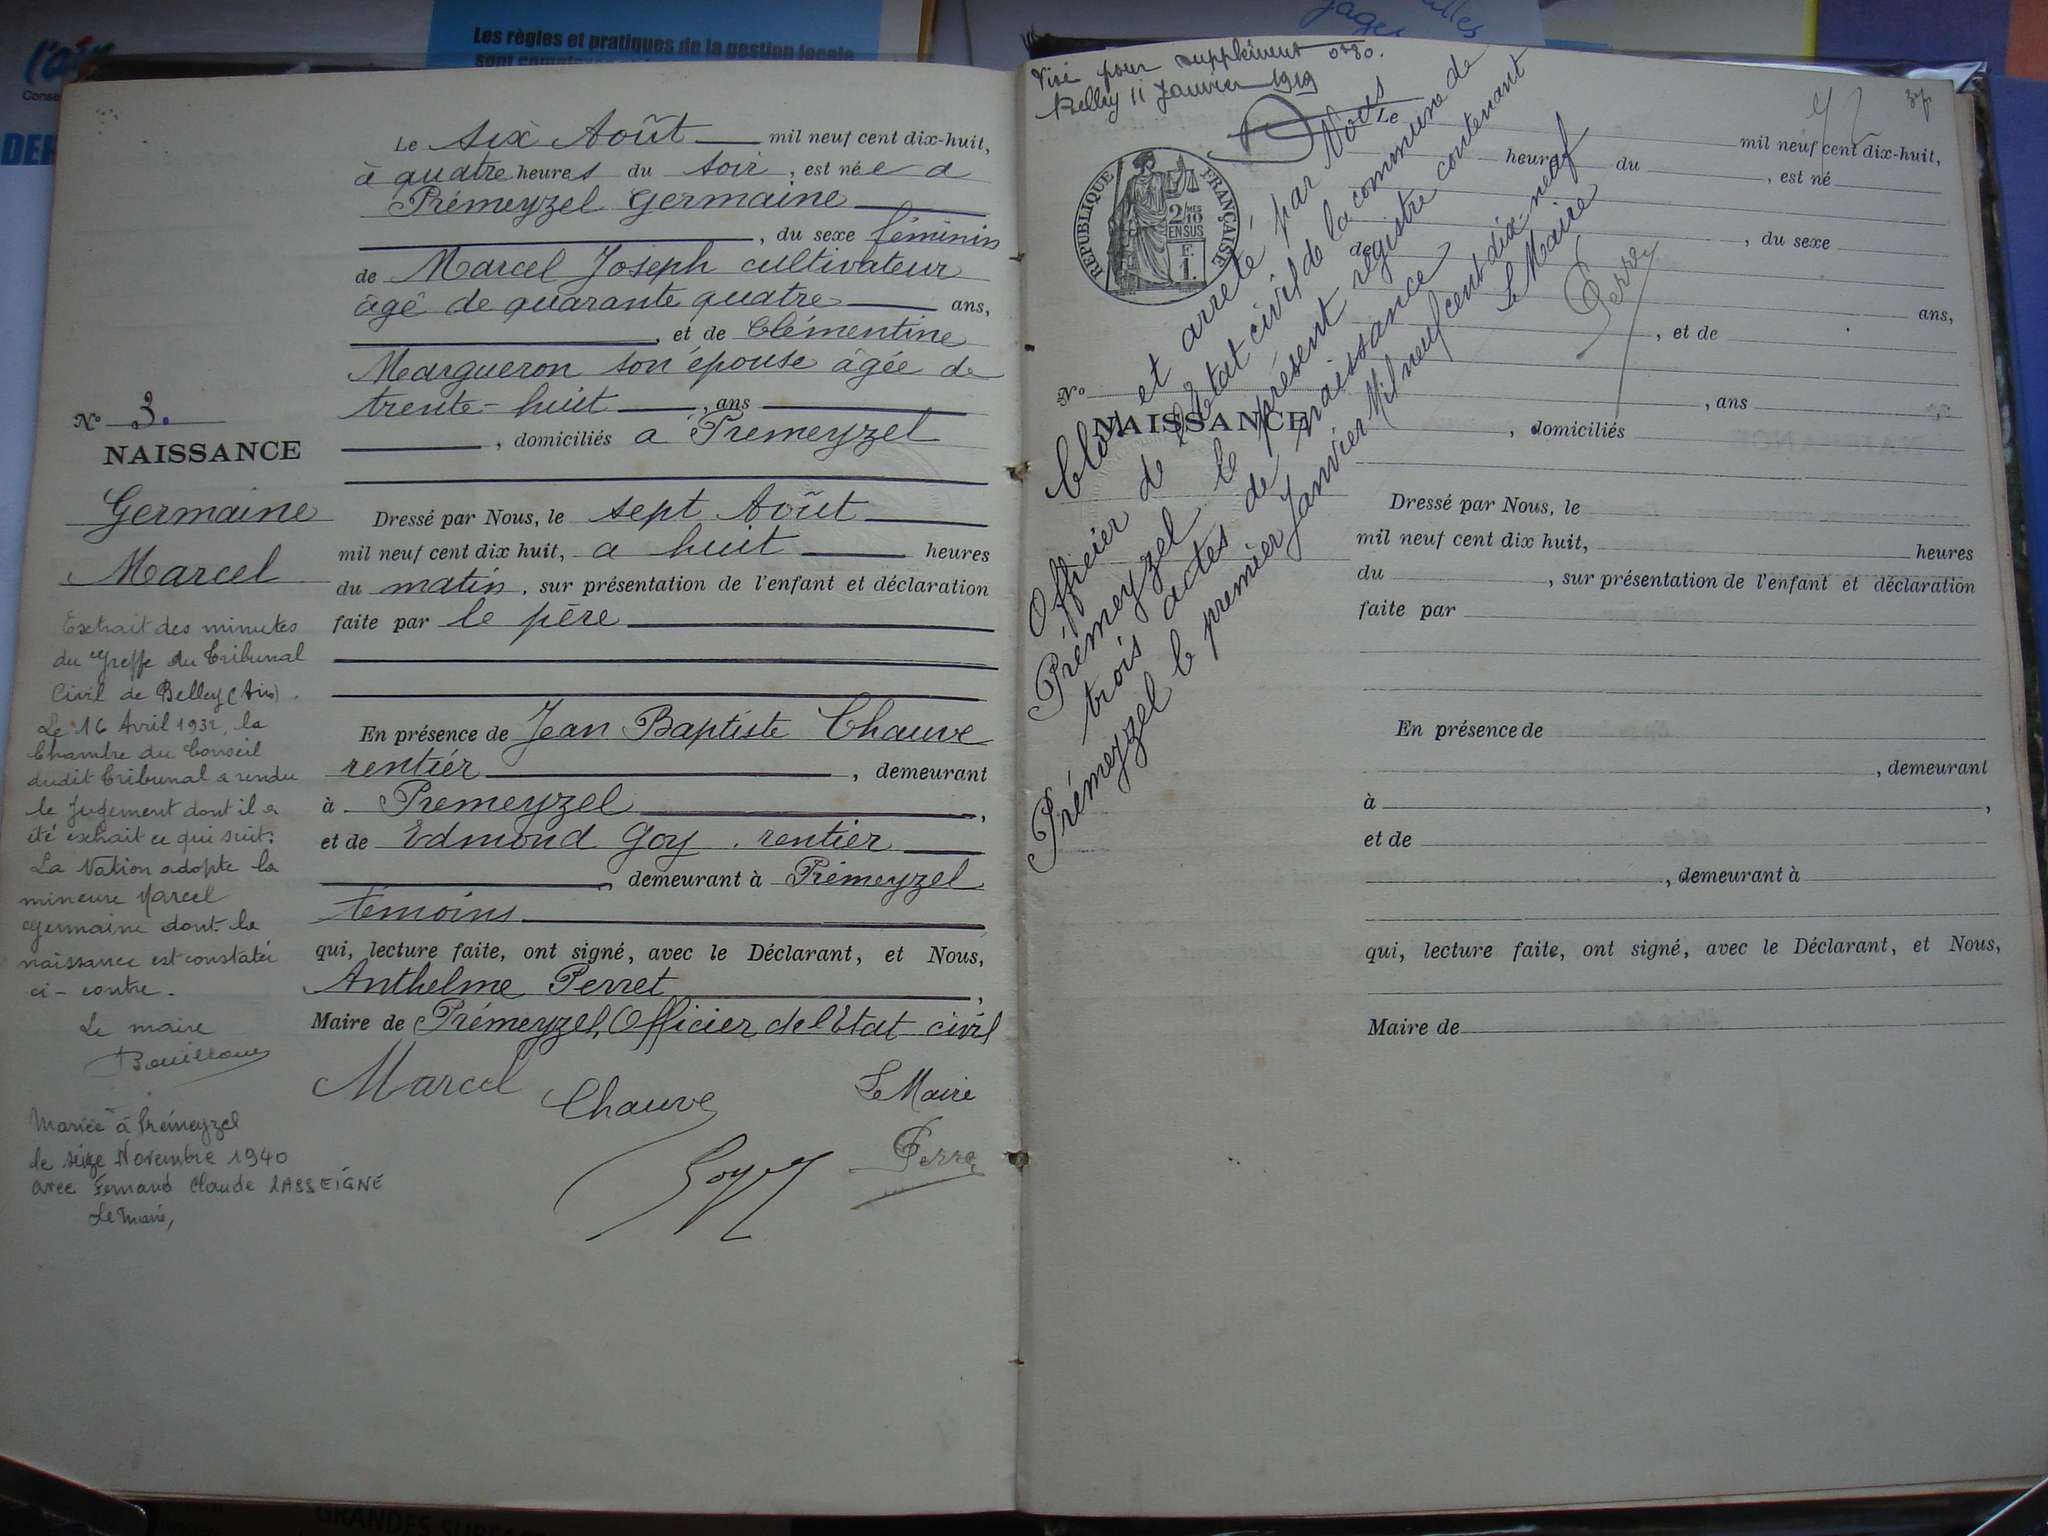 l'ain
Les règles et pratiques de la gestion locale
Le six Août mil neuf cent dix-huit,
à quatre heures du soir, est née a
Prémeyzel Germaine
, du sexe féminin
de Marcel Joseph cultivateur
âgé de quarante quatre ans,
et de Clémentine
Margueron son épouse âgée de
trente-huit, ans
, domiciliés a Premeyzel
No 3.
NAISSANCE
Germaine
Marcel
Dressé par Nous, le sept Août
mil neuf cent dix huit, a huit heures
du matin, sur présentation de l'enfant et déclaration
faite par le père
En présence de Jean Baptiste Chauve
rentier, demeurant
à Premeyzel,
et de Edmond Goy. rentier
, demeurant à Prémeyzel
témoins
qui, lecture faite, ont signé, avec le Déclarant, et Nous,
Anthelme Perret,
Maire de Prémeyzel, Officier de l'Etat civil
Marcel
Chauve
Le Maire
Goy
Perret
Extrait des minutes
du Greffe du Tribunal
Civil de Belley (Ain).
Le 16 Avril 1932, la
Chambre du Conseil
dudit Tribunal a rendu
le Jugement dont il a
été extrait ce qui suit:
La Nation adopte la
mineure Marcel
Germaine dont la
naissance est constatée
ci-contre.
Le maire
Mariée à Prémeyzel
le seize Novembre 1940
avec Fernand Claude LASSEIGNE
Le Maire,
Visé pour supplément 0f30.
Belley 11 Janvier 1919
RÉPUBLIQUE FRANÇAISE
2/10 MES
EN SUS
F.
1.
Clos et arreté par Nous
Officier de l'Etat civil de la commune de
Prémeyzel le présent registre contenant
trois actes de naissance
Prémeyzel le premier Janvier Mil neuf cent dix-neuf
Le Maire
Perret
37
Le mil neuf cent dix-huit,
heures du , est né
, du sexe
de
ans,
, et de
No
NAISSANCE
, ans
, domiciliés
Dressé par Nous, le
mil neuf cent dix huit, heures
du , sur présentation de l'enfant et déclaration
faite par
En présence de
, demeurant
à ,
et de
, demeurant à
qui, lecture faite, ont signé, avec le Déclarant, et Nous,
Maire de